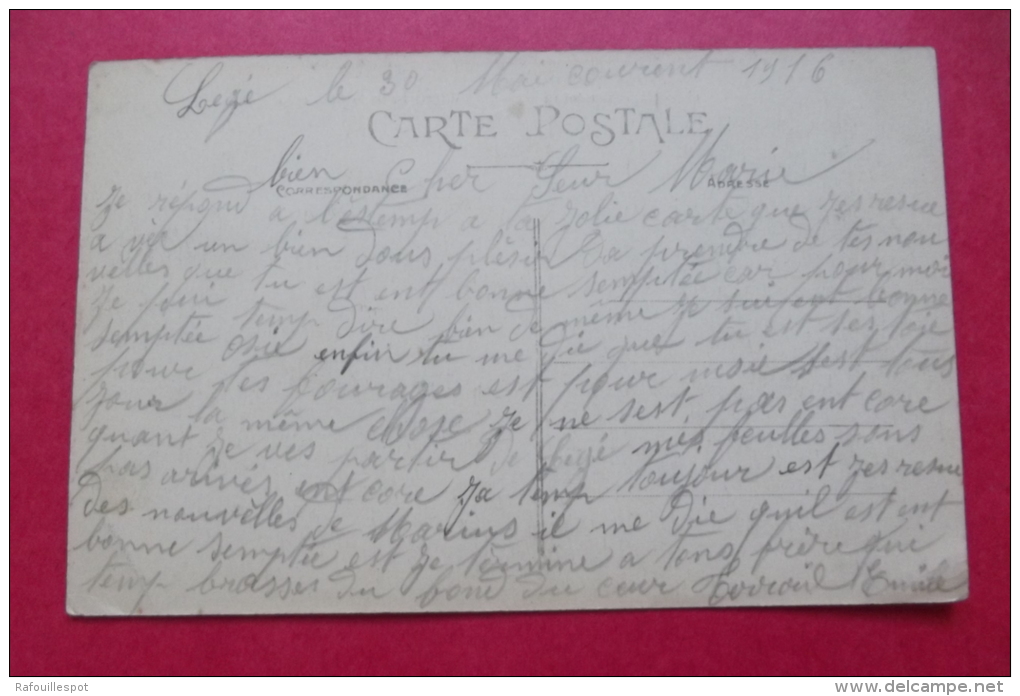 Legé le 30 Mai courent 1916
CARTE POSTALE
bien Cher Seur Marie
CORRESPONDANCE
ADRESSE
Je répond a l'estemp a ta Jolie carte que Jes resue
a vée un bien dous plésir Da prendre de tes nou
velles que tu est ent bonne semptée car pour moi
Je puit temp dire bien de même Je suit ent bonne
semptée osie enfin tu me die que tu est
pour tes courages est pour moie sest tous
Jour la même chose Je ne sest pas ent core
quant Je ves partir de Legé mes feulles sons
pas arivés ent core Ja temp toujour est Jes resue
des nouvelles de Marius il me Die quil est ent
bonne semptée est Je termine a tons frère qui
temp brasses du fond du cœur Emile
Rafouillespot
www.delcampe.net